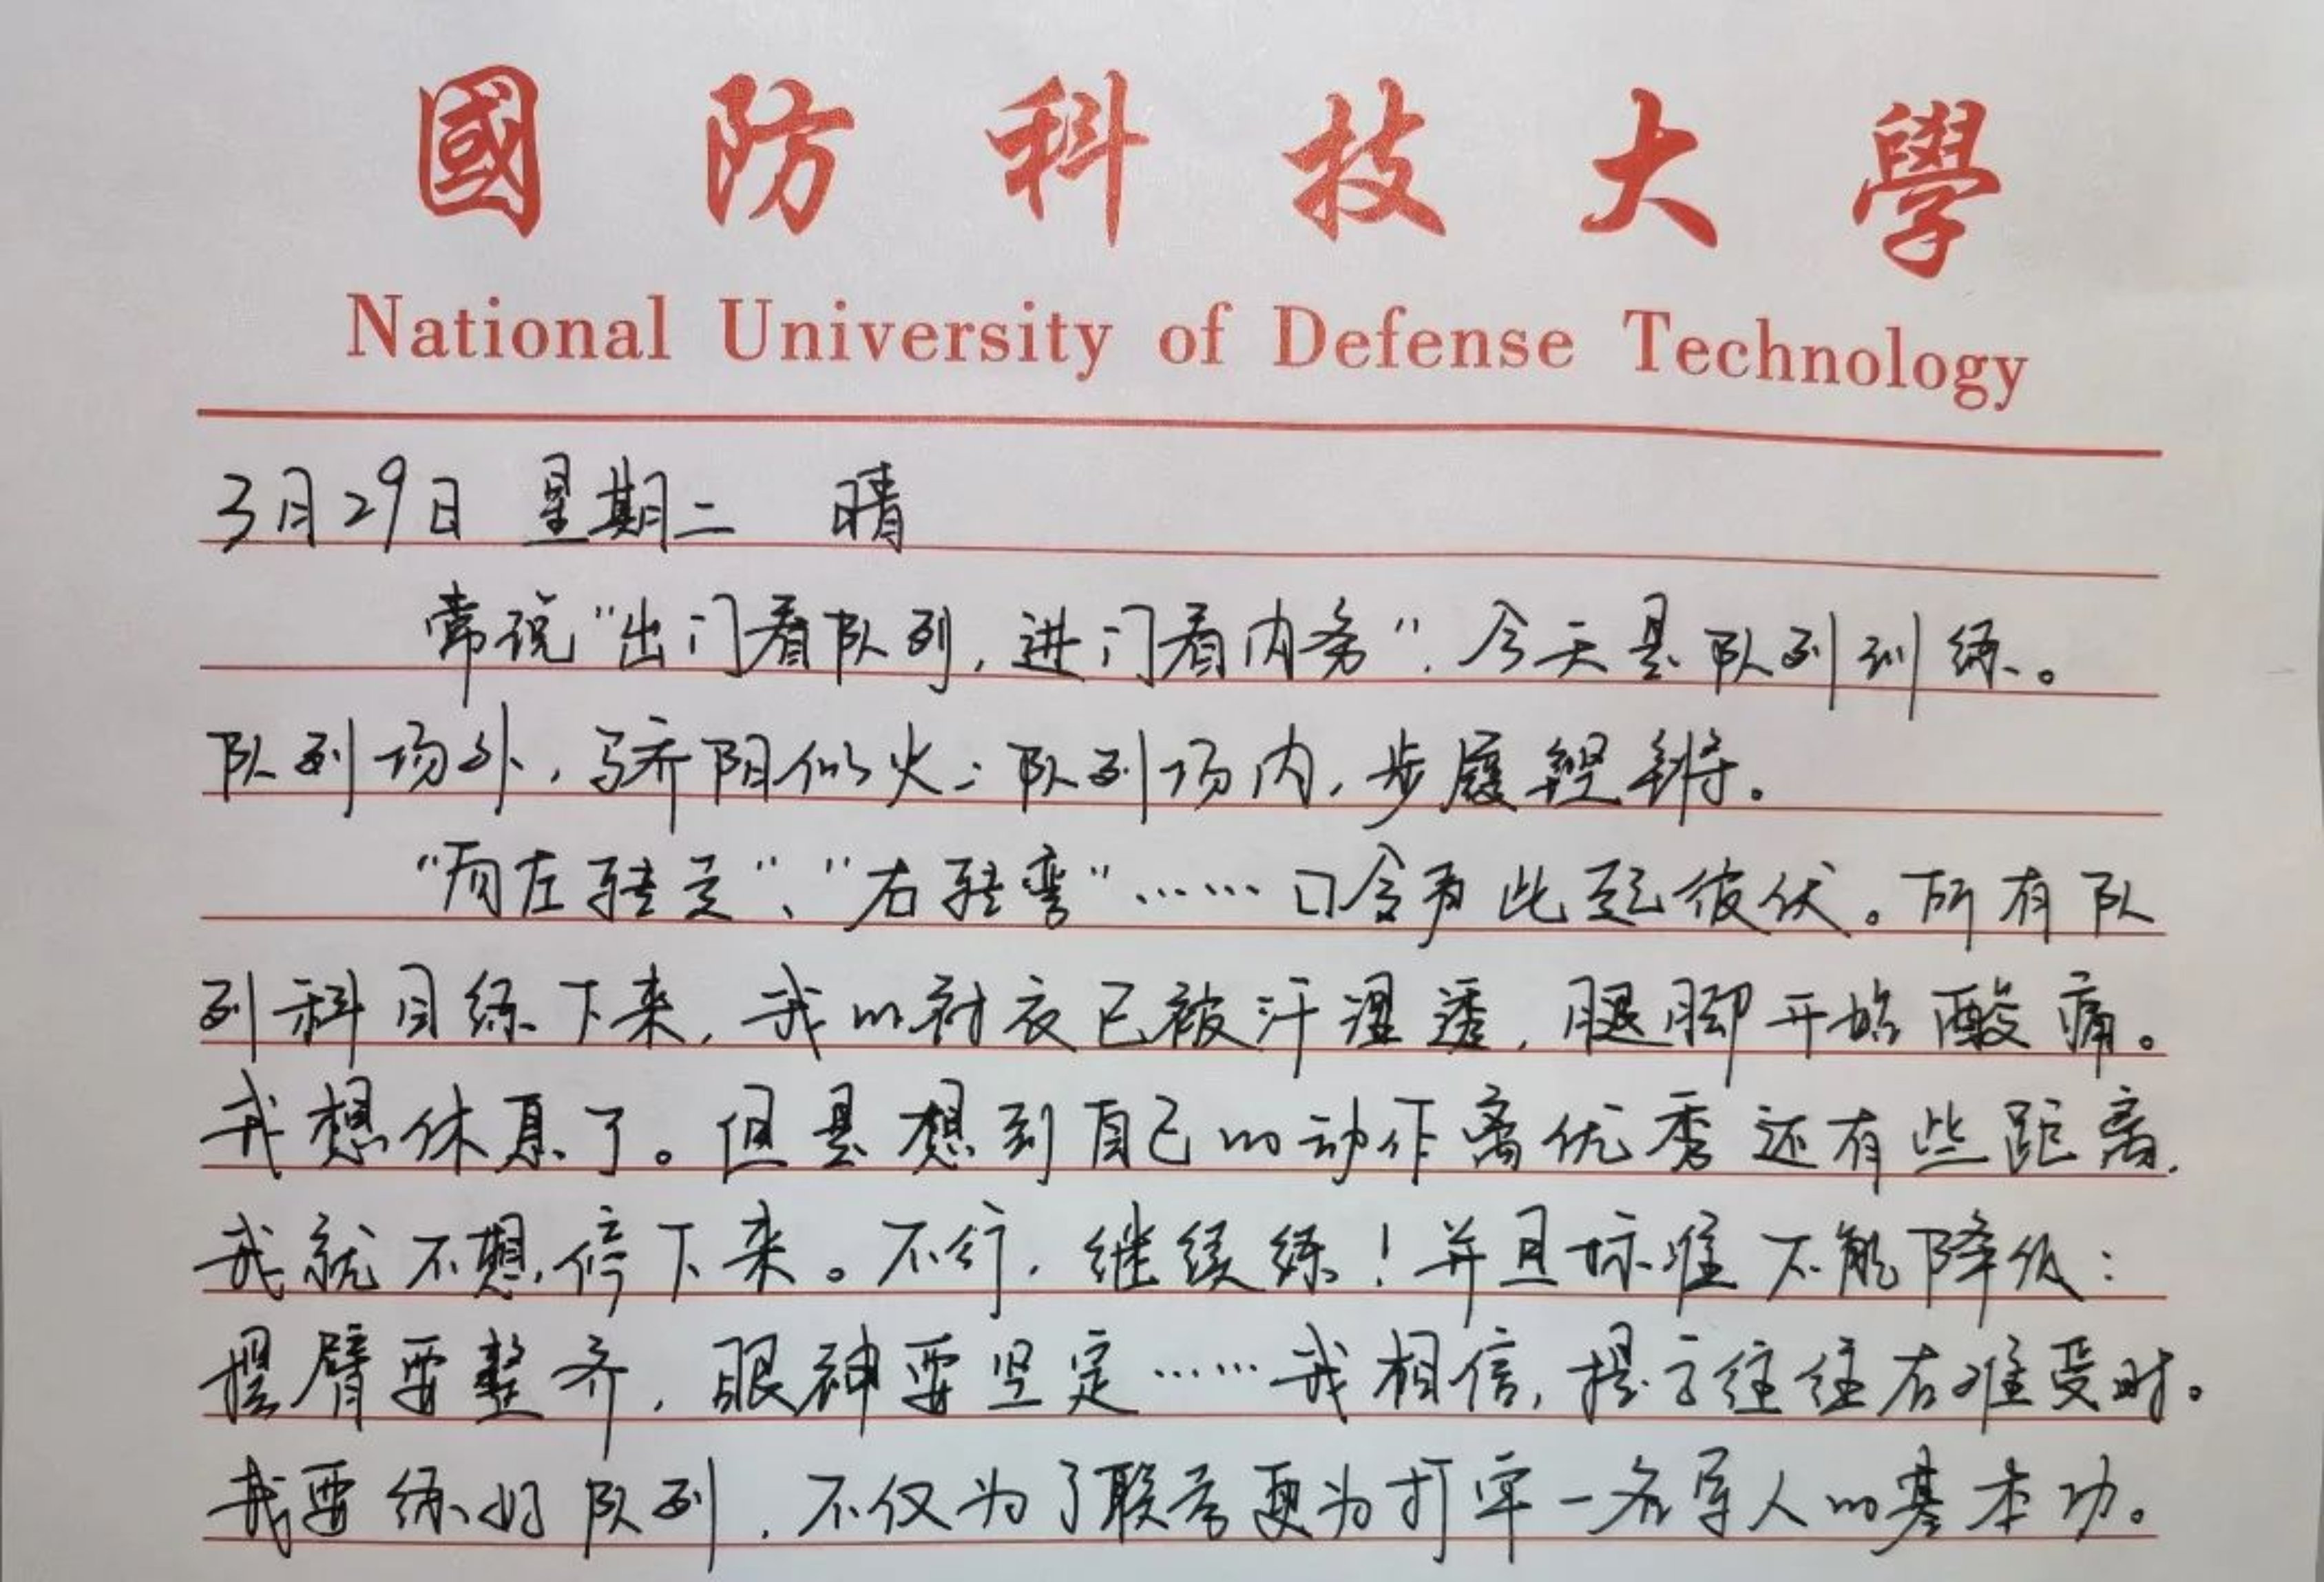 國防科技大學
National University of Defense Technology
3月29日 星期二 晴
常说“出门看队列，进门看内务”．今天是队列训练。
队列场外，骄阳似火；队列场内，步履铿锵。
“向左转走”、“右转弯”……口令声此起彼伏。所有队
列科目练下来，我的衬衣已被汗湿透，腿脚开始酸痛。
我想休息了。但是想到自己的动作离优秀还有些距离，
我就不想停下来。不行，继续练！并且标准不能降低：
摆臂要整齐，眼神要坚定……我相信，提高往往在难受时。
我要练好队列，不仅为了联考更为打牢一名军人的基本功。